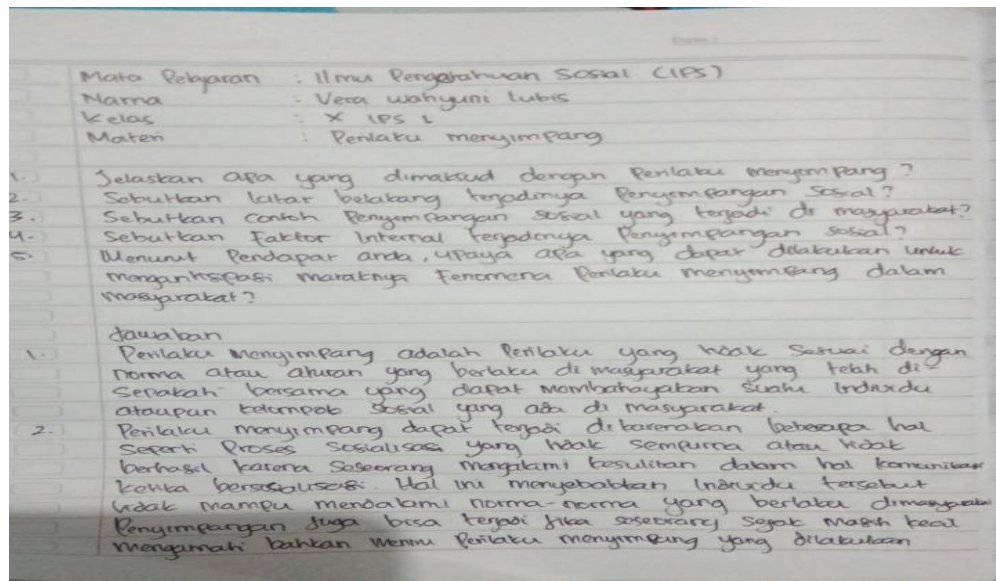 Mata Pelajaran : Ilmu Pengetahuan Sosial (IPS)
Nama : Vera wahyuni lubis
Kelas : X IPS 1
Materi : Perilaku menyimpang
1. Jelaskan apa yang dimaksud dengan Perilaku menyimpang ?
2. Sebutkan latar belakang terjadinya Penyimpangan Sosial?
3. Sebutkan Contoh Penyimpangan sosial yang terjadi di masyarakat?
4. Sebutkan Faktor Internal terjadinya Penyimpangan sosial?
5. Menurut Pendapat anda, upaya apa yang dapat dilakukan untuk
mengantisipasi maraknya Fenomena Perilaku menyimpang dalam
masyarakat?
Jawaban
1. Perilaku menyimpang adalah Perilaku yang tidak Sesuai dengan
norma atau aturan yang berlaku di masyarakat yang telah di
sepakati bersama yang dapat membahayakan suatu Individu
ataupun kelompok sosial yang ada di masyarakat.
2. Perilaku menyimpang dapat terjadi dikarenakan beberapa hal
seperti Proses Sosialisasi yang tidak sempurna atau tidak
berhasil karena Seseorang mengalami kesulitan dalam hal komunikasi
ketika bersosialisasi. Hal ini menyebabkan Individu tersebut
tidak mampu mendalami norma-norma yang berlaku dimasyarakat
Penyimpangan Juga bisa terjadi jika seseorang sejak masih kecil
mengamati bahkan meniru Perilaku menyimpang yang dilakukan